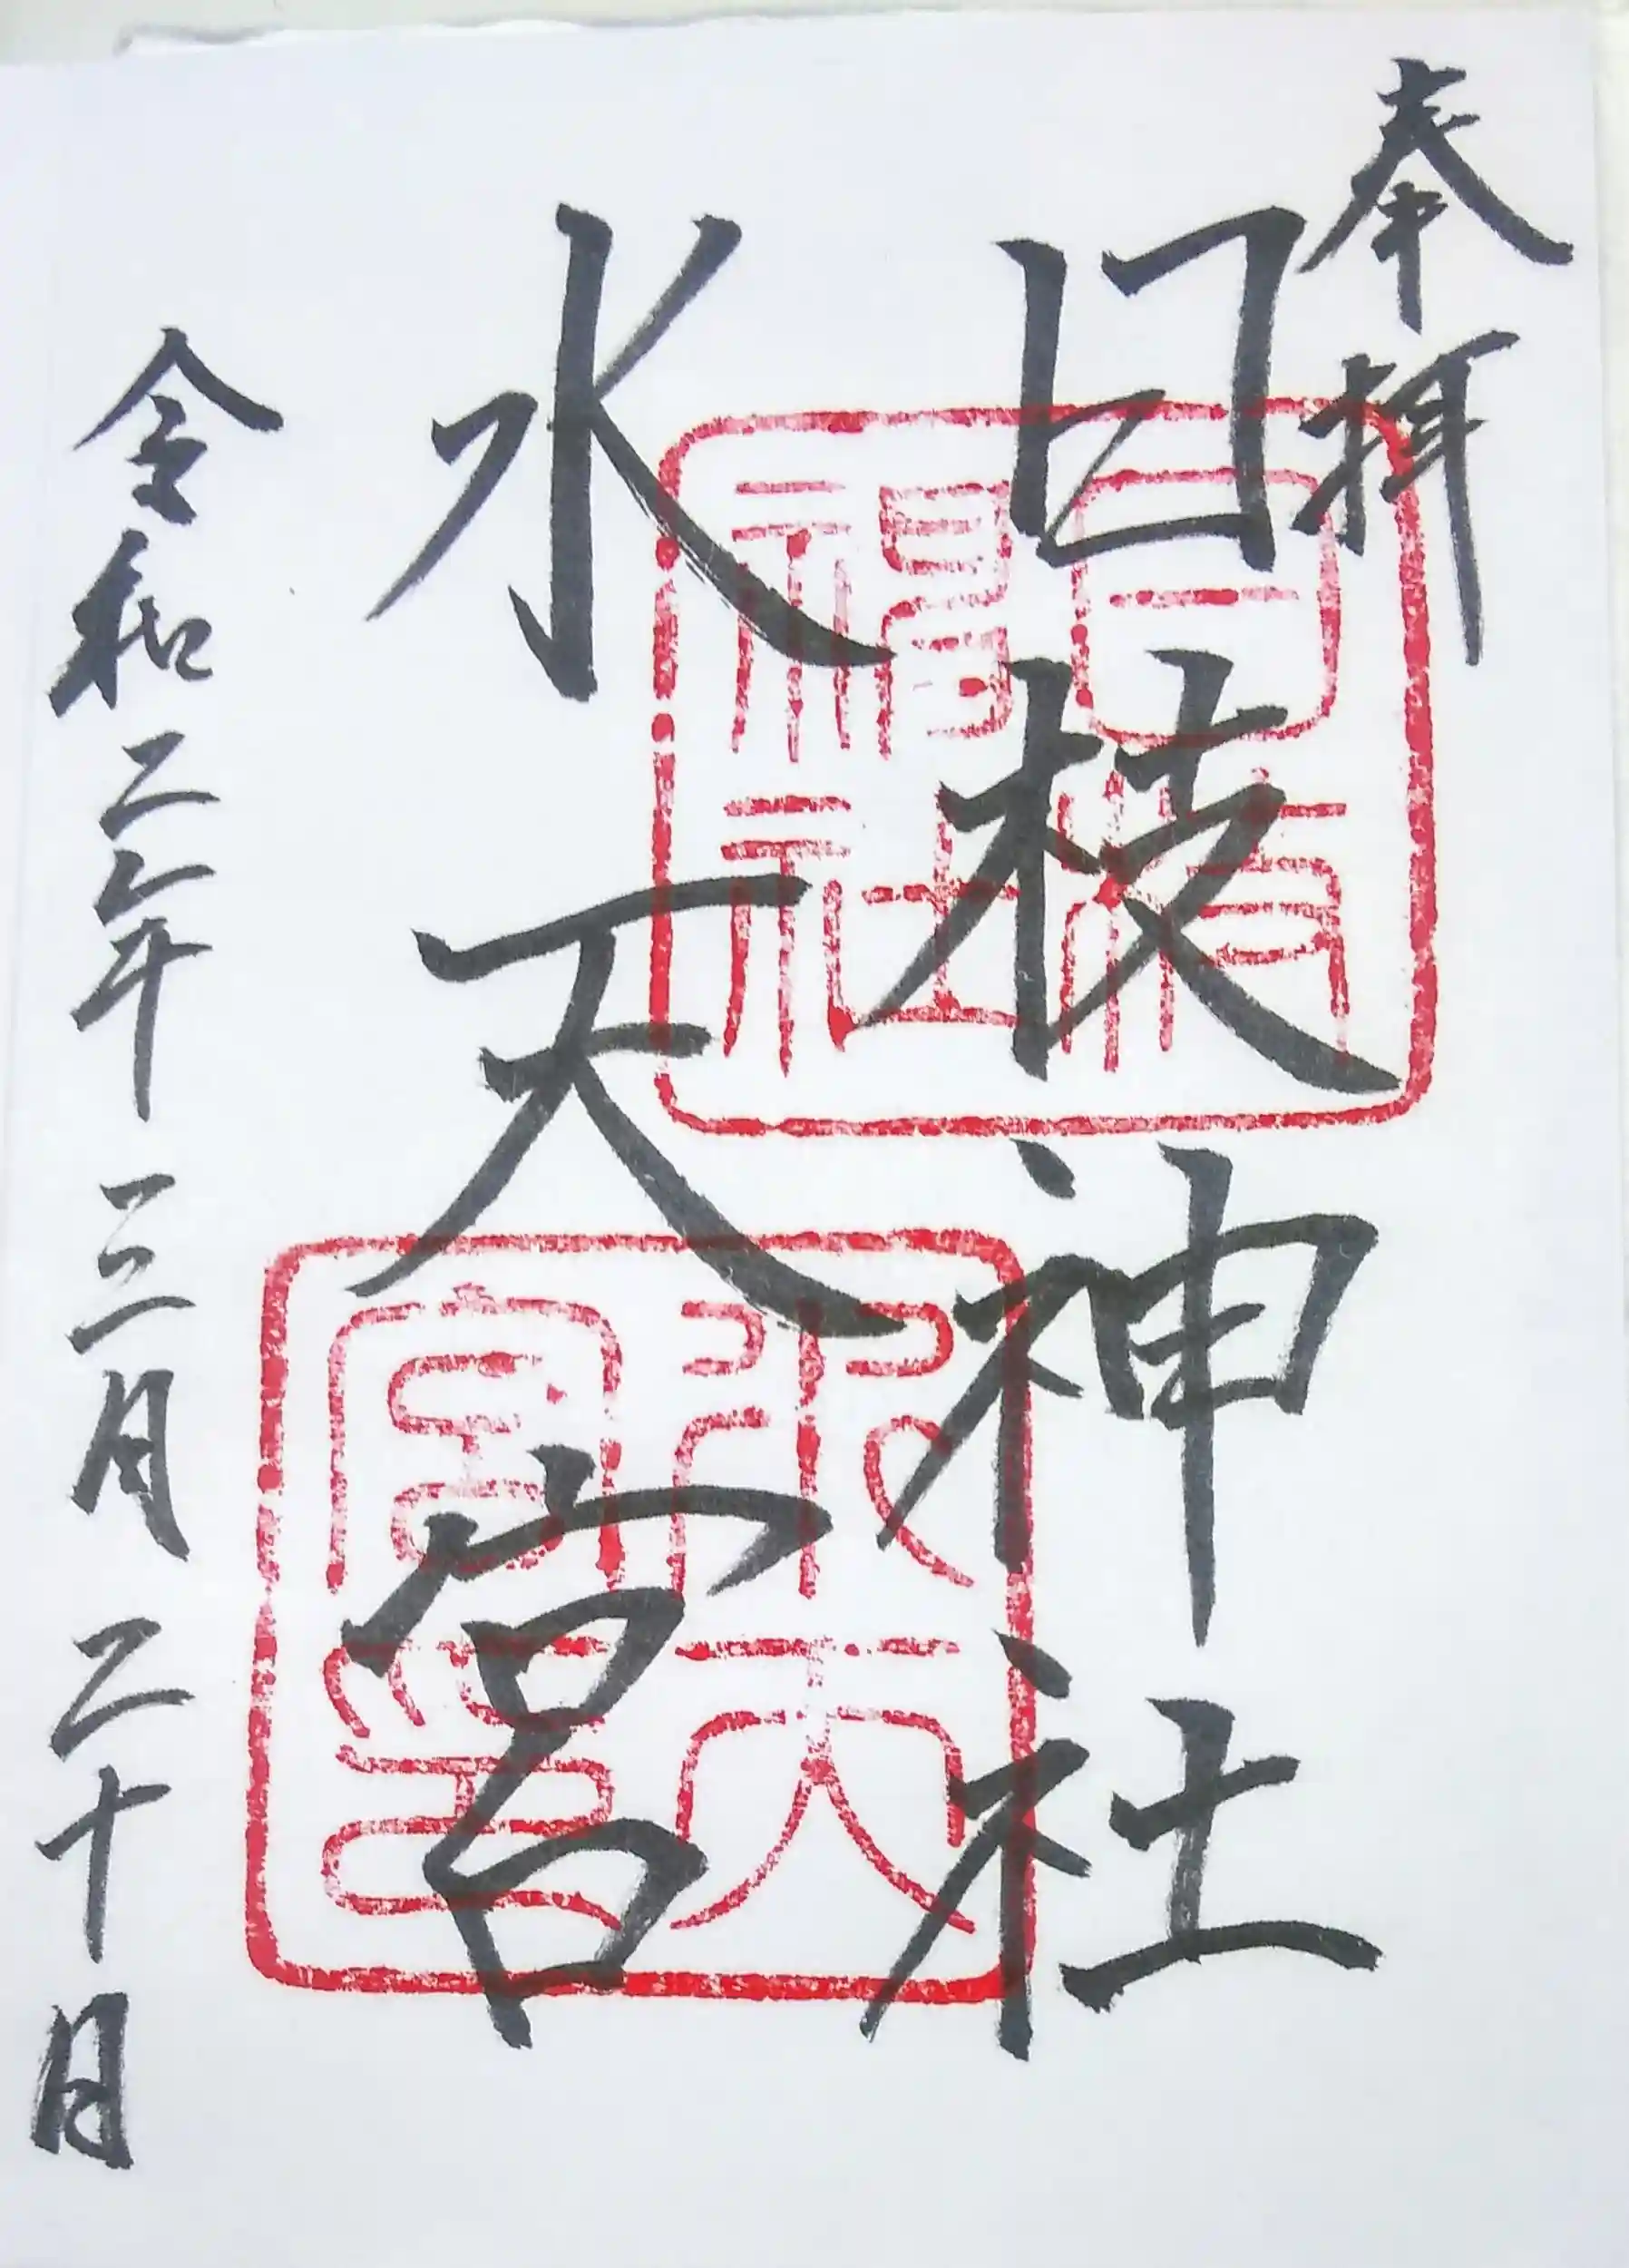 奉拝
日枝神社
水天宮
令和二年三月二十日
日枝
神社
水天
宮印